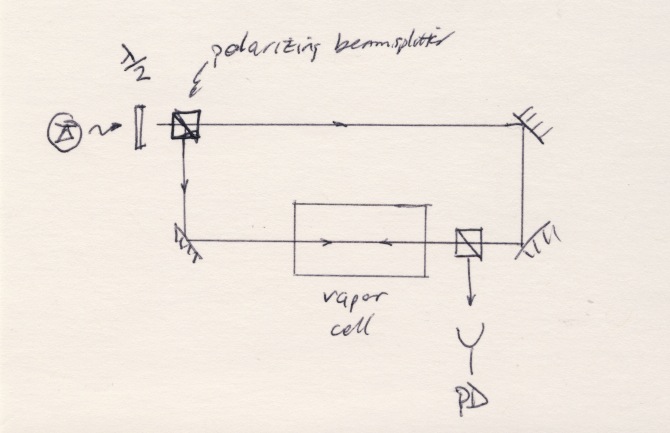 λ/2
polarizing beamsplitter
vapor
cell
PD